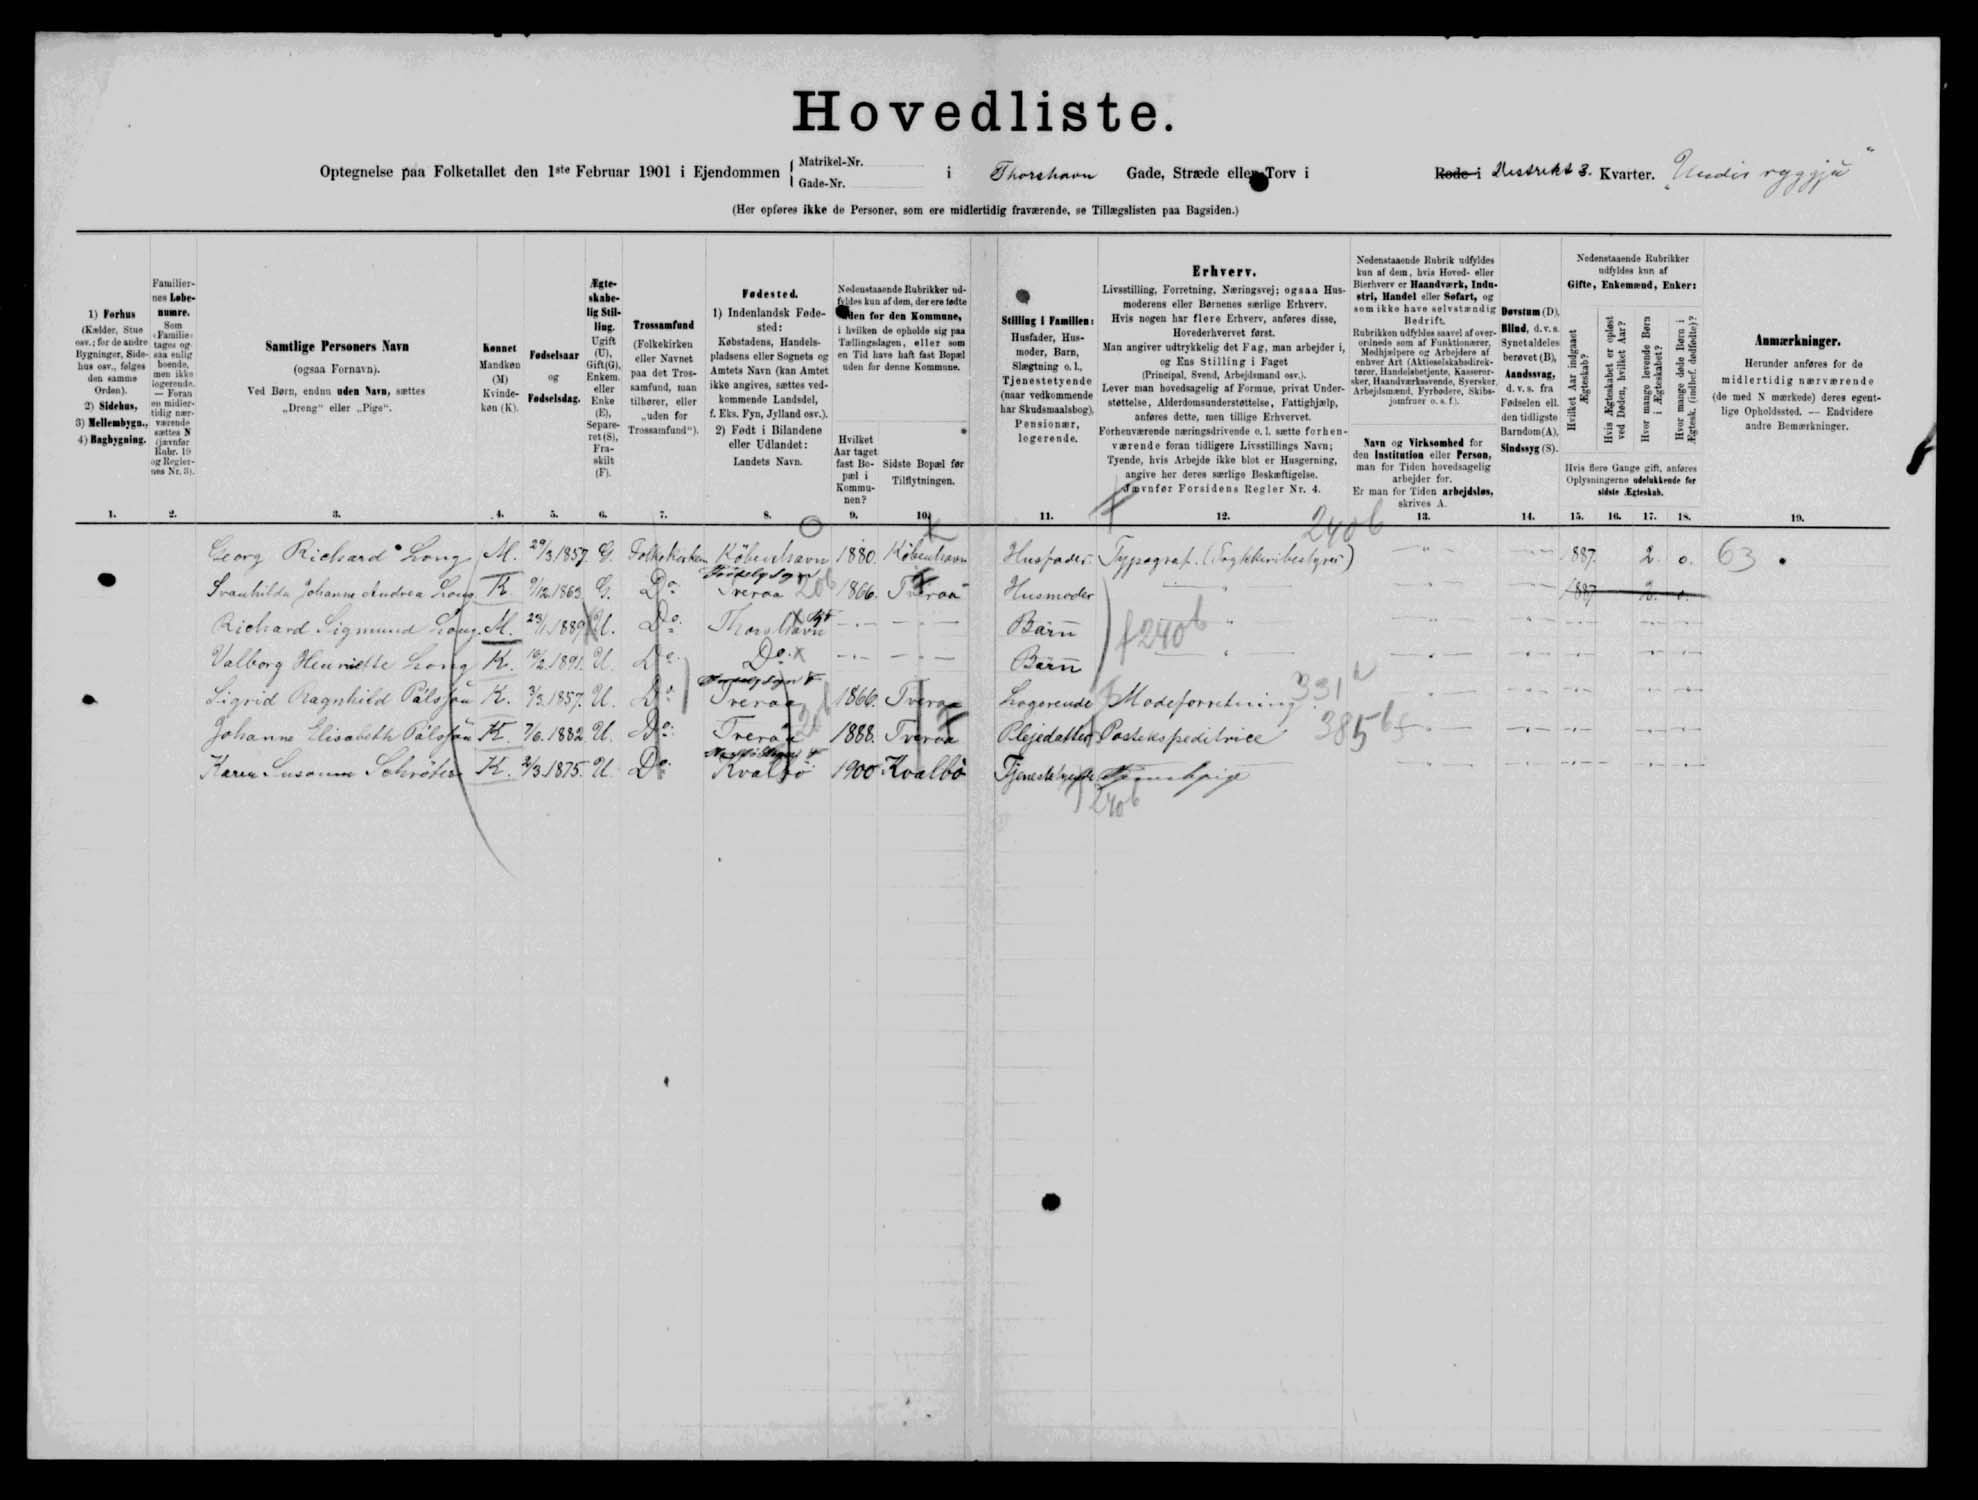 Hovedliste.
Optegnelse paa Folketallet den 1ste Februar 1901 i Ejendommen { Matrikel-Nr. Gade-Nr. i Thorshavn Gade, Stræde eller Torv i Rode i Destrikt 3. Kvarter. "Undir ryggjú"
(Her opføres ikke de Personer, som ere midlertidig fraværende, se Tillægslisten paa Bagsiden.)
1) Forhus
(Kælder, Stue
osv.; for de andre
Bygninger, Side-
hus osv., følges
den samme
Orden).
2) Sidehus,
3) Mellembygn.,
4) Bagbygning.
Familier-
nes Løbe-
numre.
Som
»Familie«
tages og-
saa enlig
boende,
men ikke
logerende.
— Foran
en midler-
tidig nær-
værende
sættes N
(jævnfør
Rubr. 19
og Regler-
nes Nr. 3).
Samtlige Personers Navn
(ogsaa Fornavn).
Ved Børn, endnu uden Navn, sættes
„Dreng" eller „Pige".
Kønnet
Mandkøn
(M)
Kvinde-
køn (K).
Fødselsaar
og
Fødselsdag.
Ægte-
skabe-
lig Stil-
ling.
Ugift
(U),
Gift(G),
Enkem.
eller
Enke
(E),
Separe-
ret (S),
Fra-
skilt
(F).
Trossamfund
(Folkekirken
eller Navnet
paa det Tros-
samfund, man
tilhører, eller
„uden for
Trossamfund").
Fødested.
1) Indenlandsk Føde-
sted:
Købstadens, Handels-
pladsens eller Sognets og
Amtets Navn (kan Amtet
ikke angives, sættes ved-
kommende Landsdel,
f. Eks. Fyn, Jylland osv.).
2) Født i Bilandene
eller Udlandet:
Landets Navn.
Nedenstaaende Rubrikker ud-
fyldes kun af dem, der ere fødte
uden for den Kommune,
i hvilken de opholde sig paa
Tællingsdagen, eller som
en Tid have haft fast Bopæl
uden for denne Kommune.
Hvilket
Aar taget
fast Bo-
pæl i
Kommu-
nen?
Sidste Bopæl før
Tilflytningen.
Stilling i Familien:
Husfader, Hus-
moder, Barn,
Slægtning o. l.,
Tjenestetyende
(naar vedkommende
har Skudsmaalsbog),
Pensionær,
logerende.
Erhverv.
Livsstilling, Forretning, Næringsvej; ogsaa Hus-
moderens eller Børnenes særlige Erhverv.
Hvis nogen har flere Erhverv, anføres disse,
Hovederhvervet først.
Man angiver udtrykkelig det Fag, man arbejder i,
og Ens Stilling i Faget
(Principal, Svend, Arbejdsmand osv.).
Lever man hovedsagelig af Formue, privat Under-
støttelse, Alderdomsunderstøttelse, Fattighjælp,
anføres dette, men tillige Erhvervet.
Forhenværende næringsdrivende o. l. sætte forhen-
værende foran tidligere Livsstillings Navn;
Tyende, hvis Arbejde ikke blot er Husgerning,
angive her deres særlige Beskæftigelse.
Jævnfør Forsidens Regler Nr. 4.
Nedenstaaende Rubrik udfyldes
kun af dem, hvis Hoved- eller
Bierhverv er Haandværk, Indu-
stri, Handel eller Søfart, og
som ikke have selvstændig
Bedrift.
Rubrikken udfyldes saavel af over-
ordnede som af Funktionærer,
Medhjælpere og Arbejdere af
enhver Art (Aktieselskabsdirek-
tører, Handelsbetjente, Kasserer-
sker, Haandværkssvende, Syersker,
Arbejdsmænd, Fyrbødere, Skibs-
jomfruer o. s. f.).
Navn og Virksomhed for
den Institution eller Person,
man for Tiden hovedsagelig
arbejder for.
Er man for Tiden arbejdsløs,
skrives A.
Døvstum (D),
Blind, d. v. s.
Synet aldeles
berøvet (B),
Aandssvag,
d. v. s. fra
Fødselen ell.
den tidligste
Barndom (A),
Sindssyg (S).
Nedenstaaende Rubrikker
udfyldes kun af
Gifte, Enkemænd, Enker:
Hvilket Aar indgaaet Ægteskab?
Hvis Ægteskabet er opløst ved Døden, hvilket Aar?
Hvor mange levende Børn i Ægteskabet?
Hvor mange døde Børn i Ægtesk. (indbef. dødfødte)?
Hvis flere Gange gift, anføres
Oplysningerne udelukkende for
sidste Ægteskab.
Anmærkninger.
Herunder anføres for de
midlertidig nærværende
(de med N mærkede) deres egent-
lige Opholdssted. — Endvidere
andre Bemærkninger.
1. 2. 3. 4. 5. 6. 7. 8. 9. 10. 11. 12. 13. 14. 15. 16. 17. 18. 19.
240b
Georg Richard Long M. 29/3.1857. G. Folkekirken København 1880. København Husfader. Typograf. 1887. 2. 0. 63
Svanhilda Johanne Andrea Long K. 9/12.1863. G. Do Tveraa 20b 1866. Tveraa Husmoder 1887 2. 0.
Richard Sigmund Long. M. 1889 U. Do. Thorshavn Barn f 240b
Valborg Henriette Long K. 1891. U. Do. Do. Barn
Sigrid Ragnhild Pálsson K. 3/3.1857. U. Do Tveraa 1866. Tveraa Logerende Modeforretning 331
Johanne Elisabeth Pálsson K. 7/6.1882. U. Do. Tveraa 1888. Tveraa Plejedatter Postekspeditrice 385
Karen Susanne Schröter K. 1875. U. Do Kvalbø 1900 Kvalbø Tjenestetyende
240b